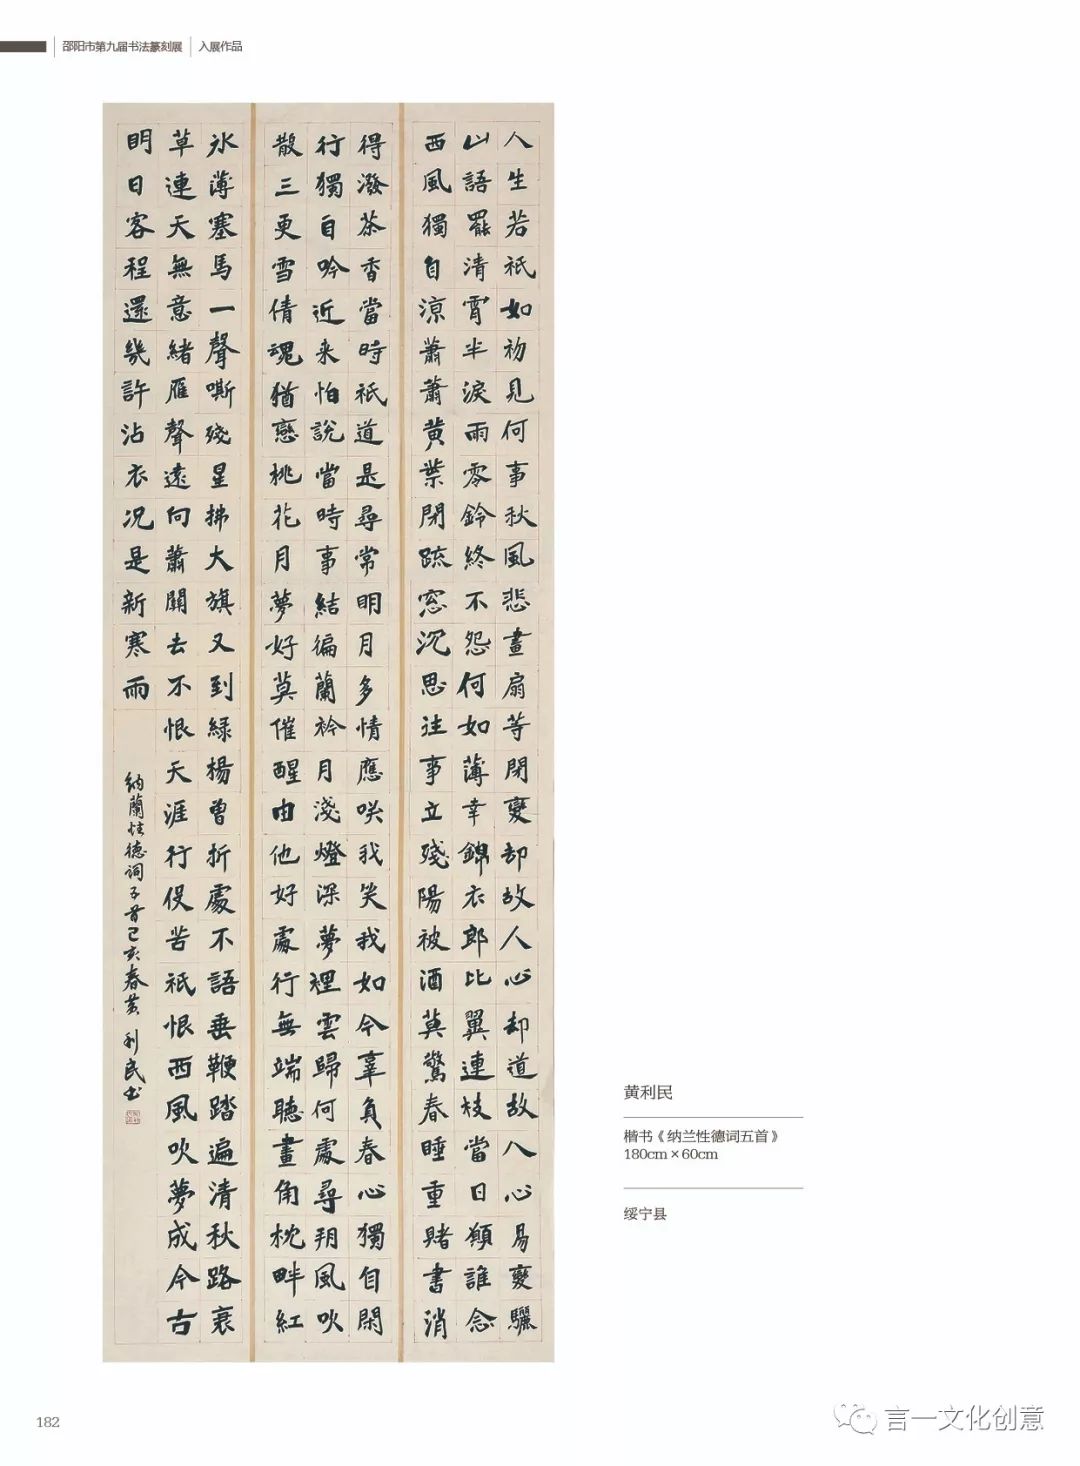 邵阳市第九届书法篆刻展 入展作品
人生若祇如初見何事秋風悲畫扇等閒變却故人心却道故人心易變驪
山語罷清宵半淚雨零鈴終不怨何如薄幸錦衣郎比翼連枝當日願誰念
西風獨自涼蕭蕭黃葉閉疏窓沉思往事立殘陽被酒莫驚春睡重賭書消
得潑茶香當時祇道是尋常明月多情應咲我笑我如今辜負春心獨自閑
行獨自吟近来怕說當時事結徧蘭衿月淺燈深夢裡雲歸何處尋朔風吹
散三更雪倩魂猶戀桃花月夢好莫催醒由他好處行無端聽畫角枕畔紅
氷薄塞馬一聲嘶殘星拂大旗又到綠楊曾折處不語垂鞭踏遍清秋路衰
草連天無意緒雁聲遠向蕭關去不恨天涯行役苦祇恨西風吹夢成今古
明日客程還幾許沾衣況是新寒雨
納蘭性德詞五首己亥春黃利民书
黄利民
楷书《纳兰性德词五首》
180cm×60cm
绥宁县
182
言一文化创意